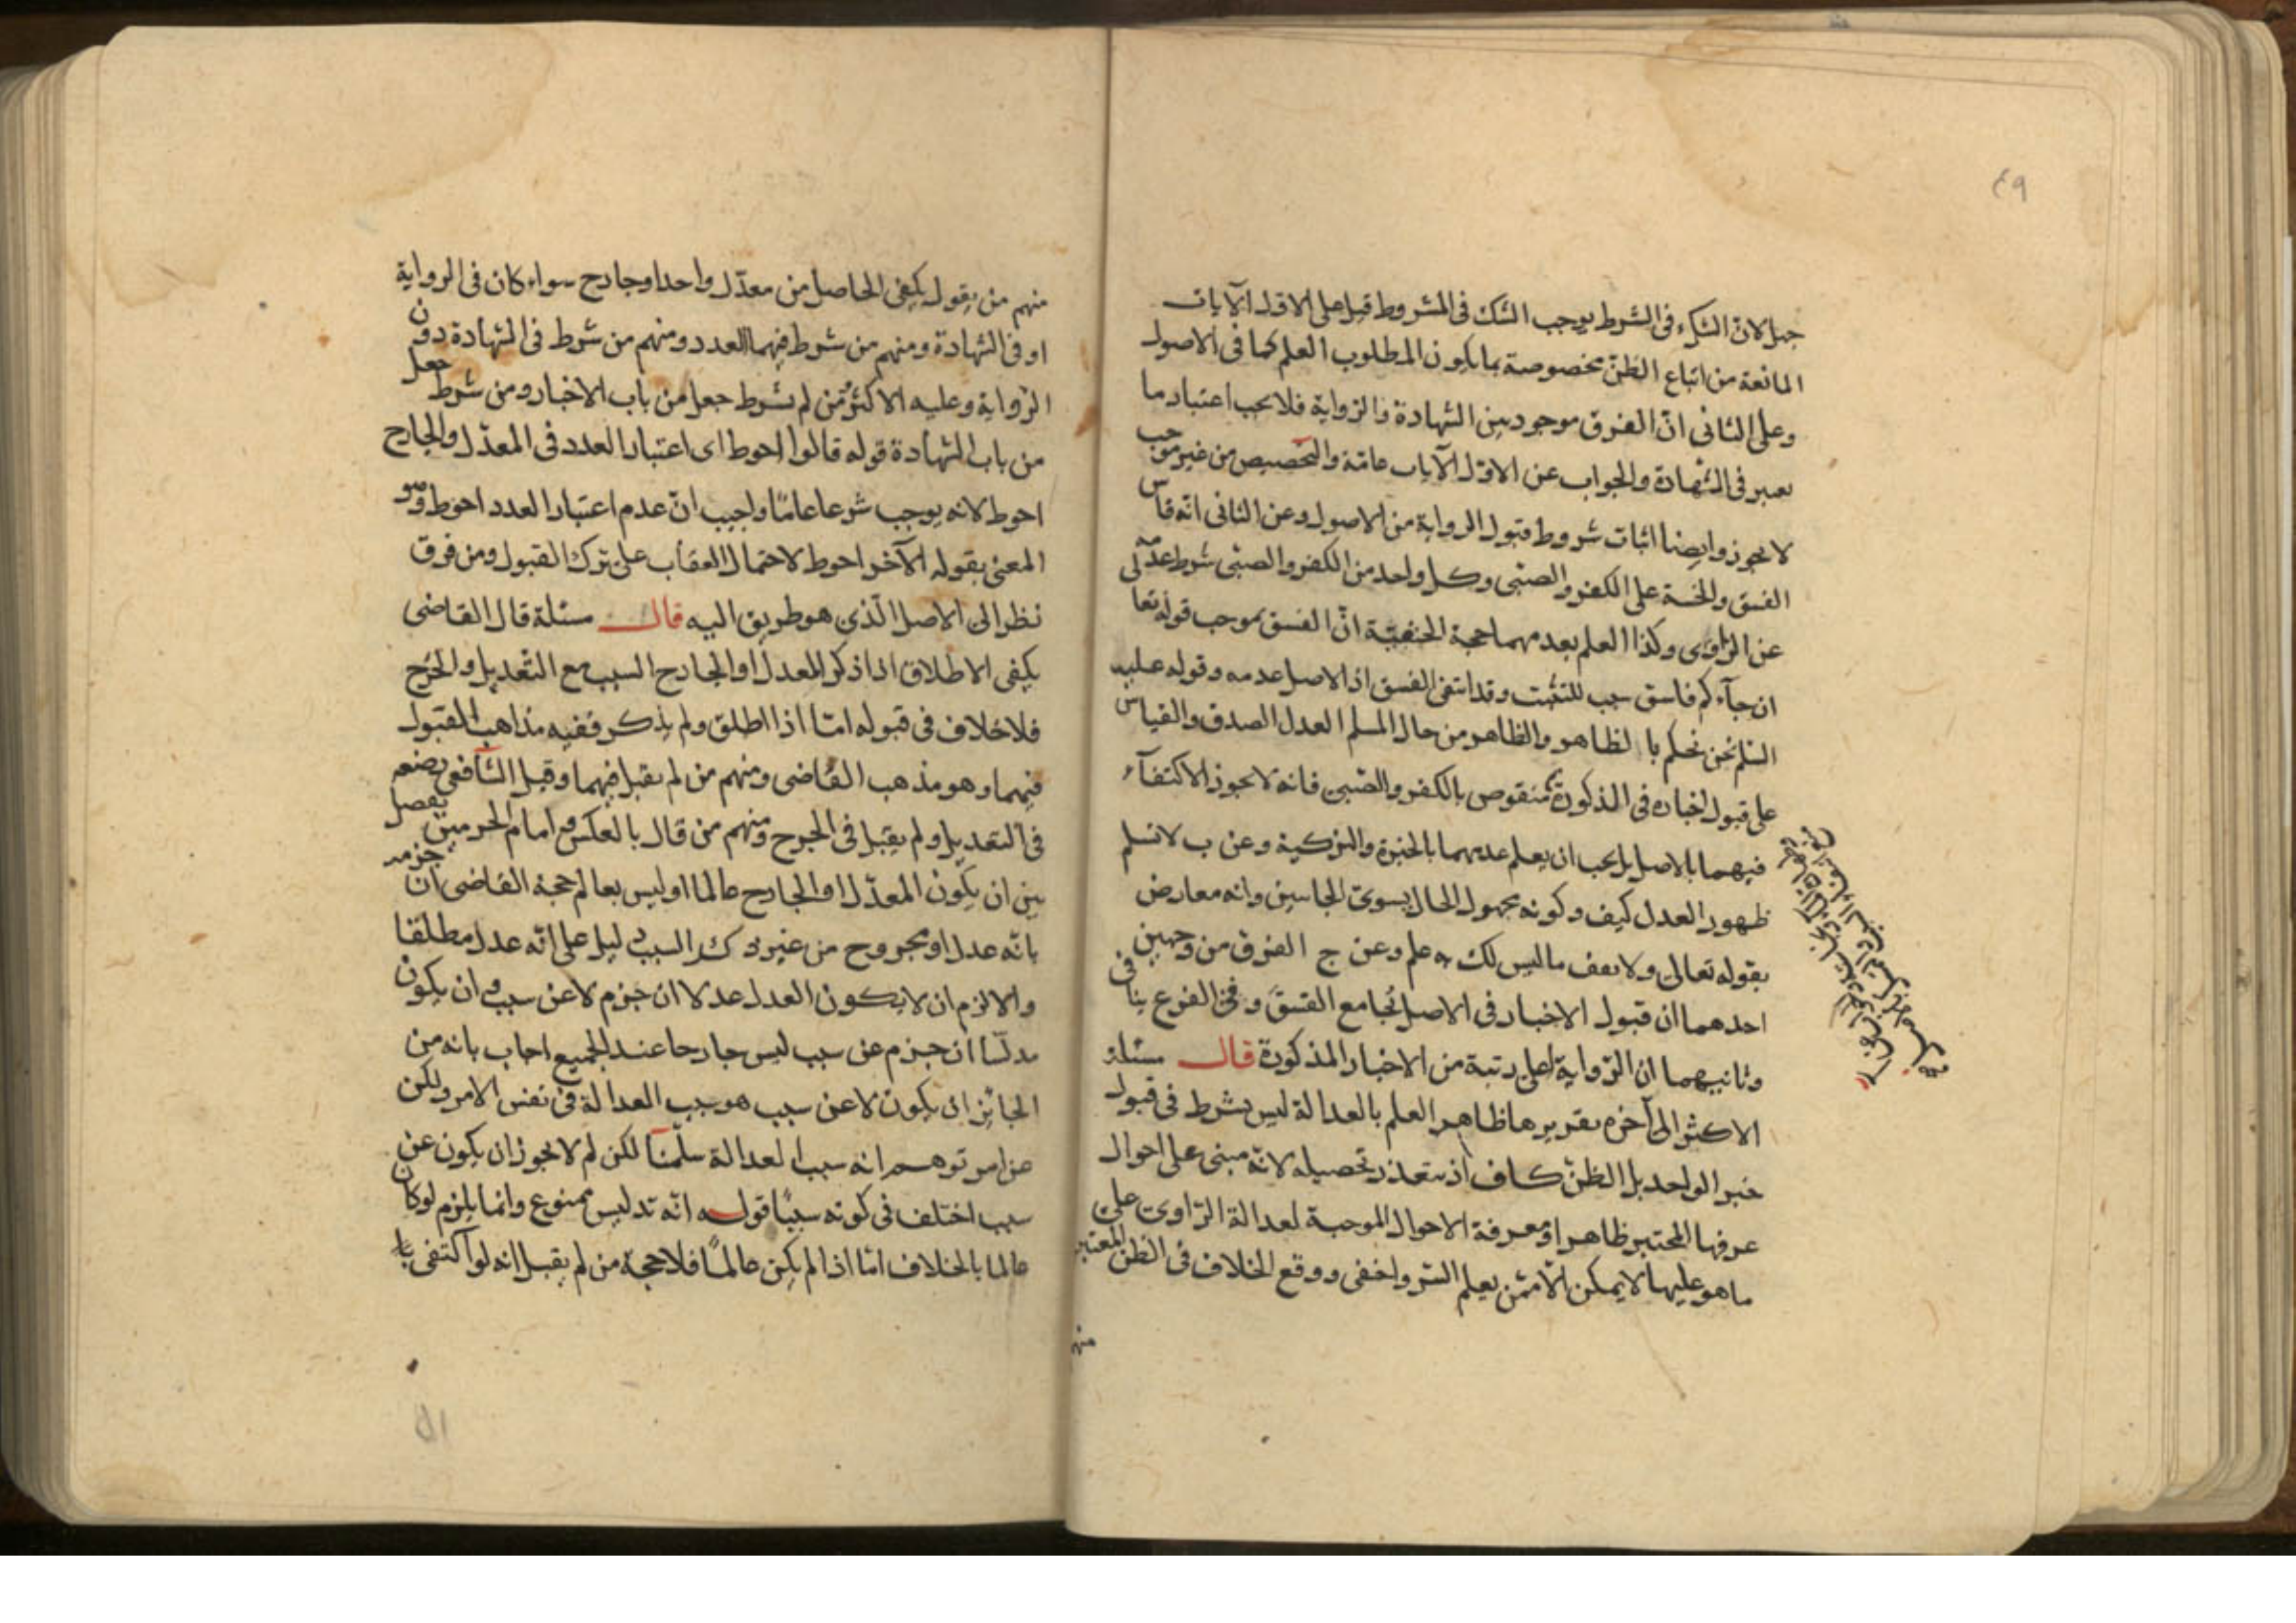 ٤٩
جهل لان الشك فى الشرط يوجب الشك فى المشروط قيل على الاول الآيات
المانعة من اتباع الظن مخصوصة بما يكون المطلوب العلم كما فى الاصول
وعلى الثانى انّ الفرق موجود بين الشهادة والرواية فلا يجب اعتبار ما
يعبر فى الشهادة والجواب عن الاول الآيات عامّة والتخصيص من غير موجب
لا يجوز وايضا اثبات شروط قبول الرواية من الاصول وعن الثانى انّه قاس
الفسق والخسة على الكفر والصبى وكل واحد من الكفر والصبى شرط عدمه
عن الراوى وكذا العلم بعدمهما حجة الحنفيّة انّ الفسق بموجب قوله تعالى
ان جآءكم فاسق سبب للتثبت وقد انتفى الفسق اذ الاصل عدمه وقوله عليه
السلم نحن نحكم با لظاهر والظاهر من حال المسلم العدل الصدق والقياس
على قبول اخباره فى المذكورة منقوص بالكفر والصّبى فانه لا يجوز الاكتفآء
فيهما بالاصل بل يجب ان يعلم عدمهما بالخبرة والتزكية وعن ب لا نسلم
ظهور العدل كيف وكونه مجهول الحال يسوى الجانبين وانه معارض
بقوله تعالى ولا تقف ما ليس لك به علم وعن ج الفرق من وجهين
احدهما ان قبول الاخبار فى الاصل تجامع الفسق وفى الفرع ينا فى
وثانيهما ان الرّواية اعلى رتبة من الاخبار المذكورة قال مسئلة
الاكثر الى آخره تقريرها ظاهر العلم بالعدالة ليس بشرط فى قبول
خبر الواحد بل الظنّ كاف اذ يتعذر تحصيله لانّه مبنى على احوال
عرفها المختبر ظاهرا ومعرفة الاحوال الموجبة لعدالة الرّاوى على
ما هو عليها لا يمكن الّا ممّن يعلم السّر واخفى ووقع الخلاف فى الظن المعتبر
منهم
منهم من يقول يكفى الحاصل من معدّل واحد او جارح سواء كان فى الرواية
او فى الشهادة ومنهم من شرط فيهما العدد ومنهم من شرط فى الشهادة دون
الرّواية وعليه الاكثر فمن لم يشرط جعل من باب الاخبار ومن شرط جعل
من باب الشهادة قوله قالوا احوط اى اعتبار العدد فى المعدّل والجارح
احوط لانه يوجب شرعا عامّا واجيب انّ عدم اعتبار العدد احوط وهو
المعنى بقوله الآخر احوط لاحتمال العقاب على ترك القبول ومن فرق
نظر الى الاصل الّذى هو طريق اليه قال مسئلة قال القاضى
يكفى الاطلاق اذا ذكر المعدل او الجارح السبب مع التّعديل والجرح
فلا خلاف فى قبوله امّا اذا اطلق ولم يذكر ففيه مذاهب القبول
فيهما وهو مذهب القاضى ومنهم من لم يقبل فيهما وقيل الشّافعى
فى التعديل ولم يقبل فى الجرح ومنهم من قال بالعكس وامام الحرمين يفصل
بين ان يكون المعدّل او الجارح عالما او ليس بعالم حجة القاضى ان جزمه
بانّه عدل او مجروح من غير ذكر السبب دليل على انّه عدل مطلقا
والا لزم ان لا يكون العدل عدلا ان جزم لا عن سبب وان يكون
مدلّسا ان جزم عن سبب ليس جارحا عند الجميع اجاب بانه من
الجائز ان يكون لا عن سبب هو يوجب العدالة فى نفس الامر ولكن
عن امر توهم انه سبب العدالة سلّمنا لكن لم لا يجوز ان يكون عن
سبب اختلف فى كونه سببًا قوله انّه تدليس ممنوع وانما يلزم لو كان
عالما بالخلاف امّا اذا لم يكن عالمًا فلا حجة من لم يقبل انه لو اكتفى با